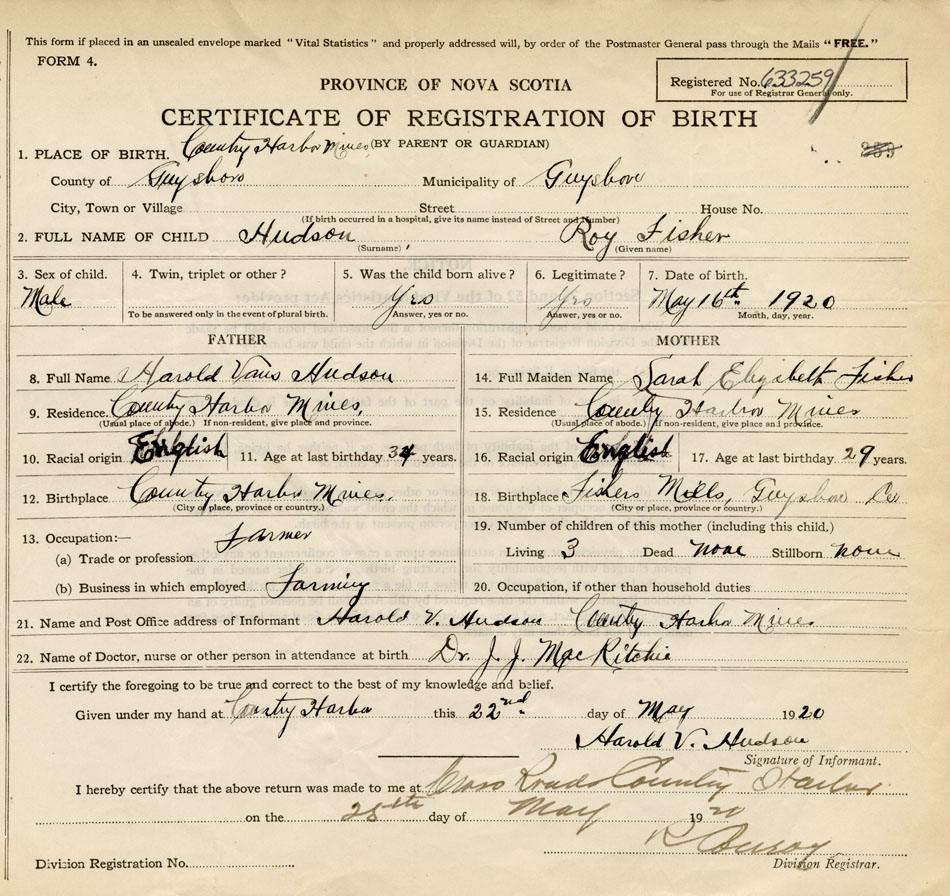 This form if placed in an unsealed envelope marked "Vital Statistics" and properly addressed will, by order of the Postmaster General pass through the Mails "FREE."
FORM 4.
Registered No. 633259
For use of Registrar General only.
PROVINCE OF NOVA SCOTIA
CERTIFICATE OF REGISTRATION OF BIRTH
(BY PARENT OR GUARDIAN)
1. PLACE OF BIRTH. Country Harbor Mines
County of Guysboro Municipality of Guysboro
City, Town or Village Street House No.
(If birth occurred in a hospital, give its name instead of Street and Number)
2. FULL NAME OF CHILD Hudson, Roy Fisher
(Surname) (Given name)
3. Sex of child. 4. Twin, triplet or other? 5. Was the child born alive? 6. Legitimate? 7. Date of birth.
Male Yes Yes May 16th 1920
To be answered only in the event of plural birth. Answer, yes or no. Answer, yes or no. Month, day, year.
FATHER MOTHER
8. Full Name Harold Vans Hudson 14. Full Maiden Name Sarah Elizabeth Fisher
9. Residence. Country Harbor Mines, 15. Residence Country Harbor Mines
(Usual place of abode.) If non-resident, give place and province. (Usual place of abode.) If non-resident, give place and province.
10. Racial origin English 11. Age at last birthday 34 years. 16. Racial origin English 17. Age at last birthday 29 years.
12. Birthplace Country Harbor Mines. 18. Birthplace Fishers Mills, Guysboro Co
(City or place, province or country.) (City or place, province or country.)
13. Occupation:— Farmer 19. Number of children of this mother (including this child.)
(a) Trade or profession Living 3 Dead none Stillborn none
(b) Business in which employed Farming 20. Occupation, if other than household duties
21. Name and Post Office address of Informant Harold V. Hudson Country Harbor Mines
22. Name of Doctor, nurse or other person in attendance at birth Dr. J. J. MacRitchie
I certify the foregoing to be true and correct to the best of my knowledge and belief.
Given under my hand at Country Harbor this 22nd day of May 1920
Harold V. Hudson
Signature of Informant.
I hereby certify that the above return was made to me at Cross Roads Country Harbor
on the 25th day of May 1920
Division Registration No. Division Registrar.